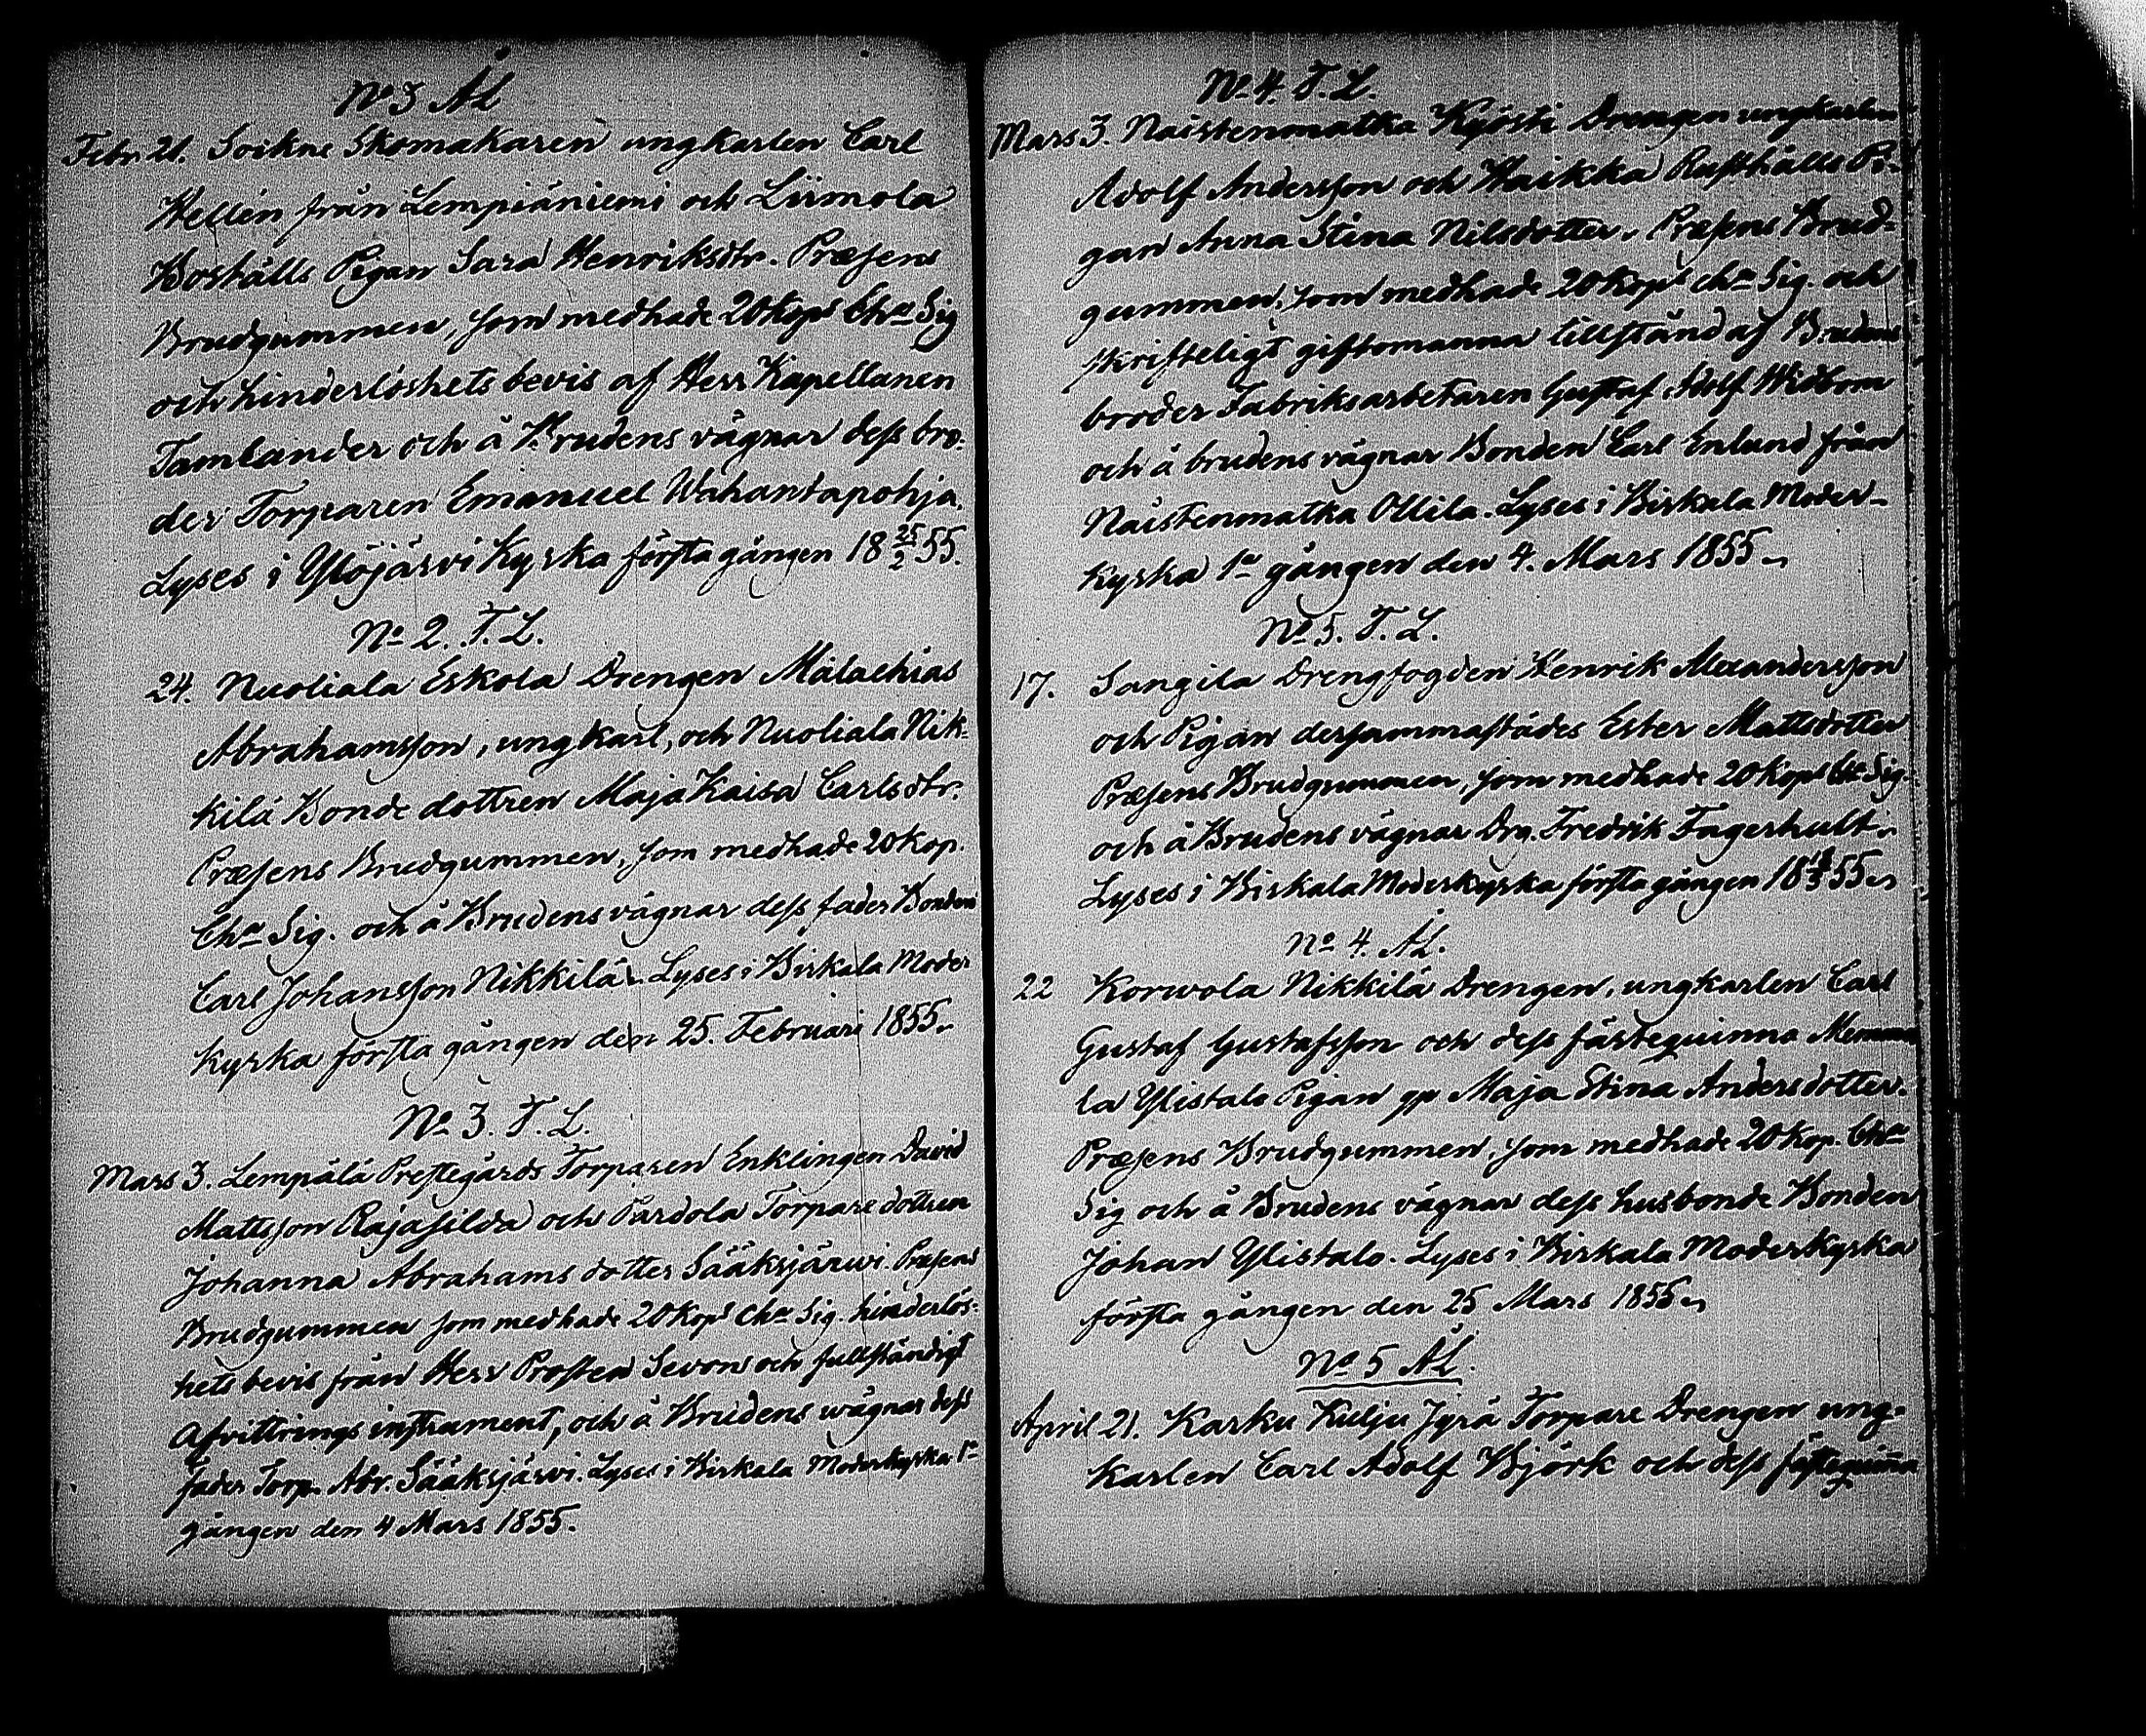 No 3 ÅL
Febr. 21. Soikne Skomakaren ungkarlen Carl
Hellén från Lempiäniemi och Liimola
Boshålls Pigan Sara Henriksdtr. Præsens
Brudgummen, som medhade 20 kops Cha Sig
och hinderlöshets bevis af Herr Kapellanen
Tamlander och å Brudens vägnar dess bro-
der Torparen Emanuel Wahantapohja.
Lyses i Ylöjärvi Kyrka första gången 18 25/2 55.
No 2. T. L.
24. Nuoliala Eskola Drengen Malachias
Abrahamsson, ungkarl, och Nuoliala Nik-
kilä Bonde dottren Maja Kaisa Carlsdtr.
Præsens Brudgummen, som medhade 20 kop.
Cha Sig. och å Brudens vägnar dess fader Bonden
Carl Johansson Nikkilä. Lyses i Birkala Moder
Kyrka första gången den 25. Februari 1855.
No 3. T. L.
Mars 3. Lempälä Prestegårds Torparen Enklingen David
Mattsson Rajasilda och Pardola Torpare dottren
Johanna Abrahams dotter Sääksjärwi. Præsens
Brudgummen som medhade 20 kops cha Sig. hinderlös-
hets bevis från Herr Prosten Sevon och fullständigt
Afvittrings instrument, och å Brudens wägnar dess
fader Torp. Abr. Sääksjärvi. Lyses i Birkala Moderkyrka 1a
gången den 4 Mars 1855.
No 4. T. L.
Mars 3. Naistenmatka Kyösti Drengen ungkarlen
Adolf Andersson och Haikka Rusthålls Pi-
gan Anna Stina Nilsdotter. Præsens Brud-
gummen, som medhade 20 kops cha Sig. och
skrifteligt giftomanna tillstånd af Brudens
broder Fabriksarbetaren Gustaf Adolf Widbom
och å brudens vägnar Bonden Carl Enlund från
Naistenmatka Ollila. Lyses i Birkala Moder-
Kyrka 1a gången den 4. Mars 1855
No 5. T. L.
17. Sangila Drengfogden Henrik Alexandersson
och Pigan dersammastädes Ester Mattsdotter
Præsens Brudgummen, som medhade 20 kops Cha Sig.
och å Brudens vägnar Drg. Fredrik Fagerhult.
Lyses i Birkala Moderkyrka första gången 18 18/3 55
No 4. ÅL.
22 Korwola Nikkilä Drengen, ungkarlen Carl
Gustaf Gustafsson och dess fästequinna
la Ylistalo Pigan Maja Stina Andersdotter.
Præsens Brudgummen, som medhade 20 kop. Cha
Sig och å Brudens vägnar dess husbonde Bonden
Johan Ylistalo. Lyses i Birkala Moderkyrka
första gången den 25 Mars 1855
No 5 ÅL.
April 21. Karku Kulju Jyrä Torpare Drengen ung-
karlen Carl Adolf Björk och dess fästequinna